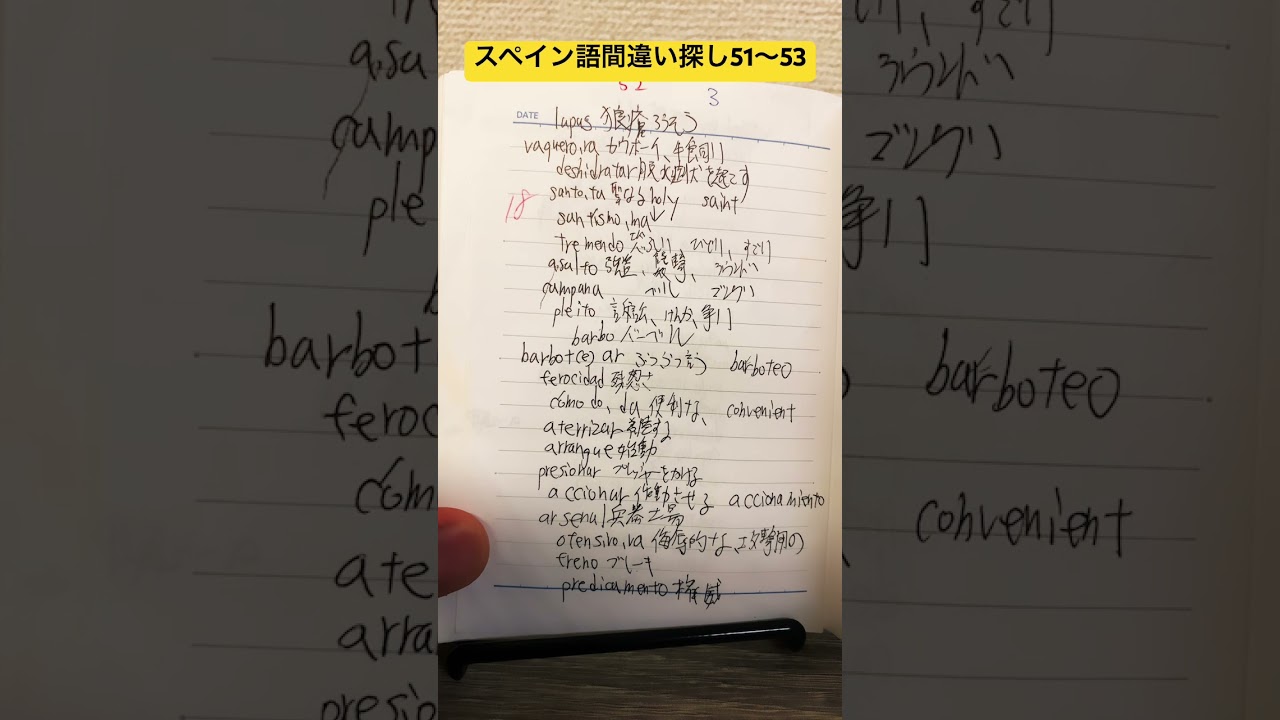 スペイン語間違い探し51〜53
52 3
DATE
lupus 狼瘡 ろうそう
vaquero,ra カウボーイ、牛飼い
deshidratar 脱水症状を起こす
santo,ta 聖なる holy saint
18
santísimo,ma
tremendo 恐ろしい、ひどい、すごい
asalto 強盗、襲撃、ラウンド
campana ベル ゴング
pleito 訴訟、けんか、争い
barbo バーベル
barbot(e)ar ぶつぶつ言う barboteo
ferocidad 残忍さ
cómodo,da 便利な、convenient
aterrizar 着陸する
arranque 始動
presionar プレッシャーをかける
accionar 作動させる accionamiento
arsenal 兵器工場
ofensivo,va 侮辱的な、攻撃用の
freno ブレーキ
predicamento 権威